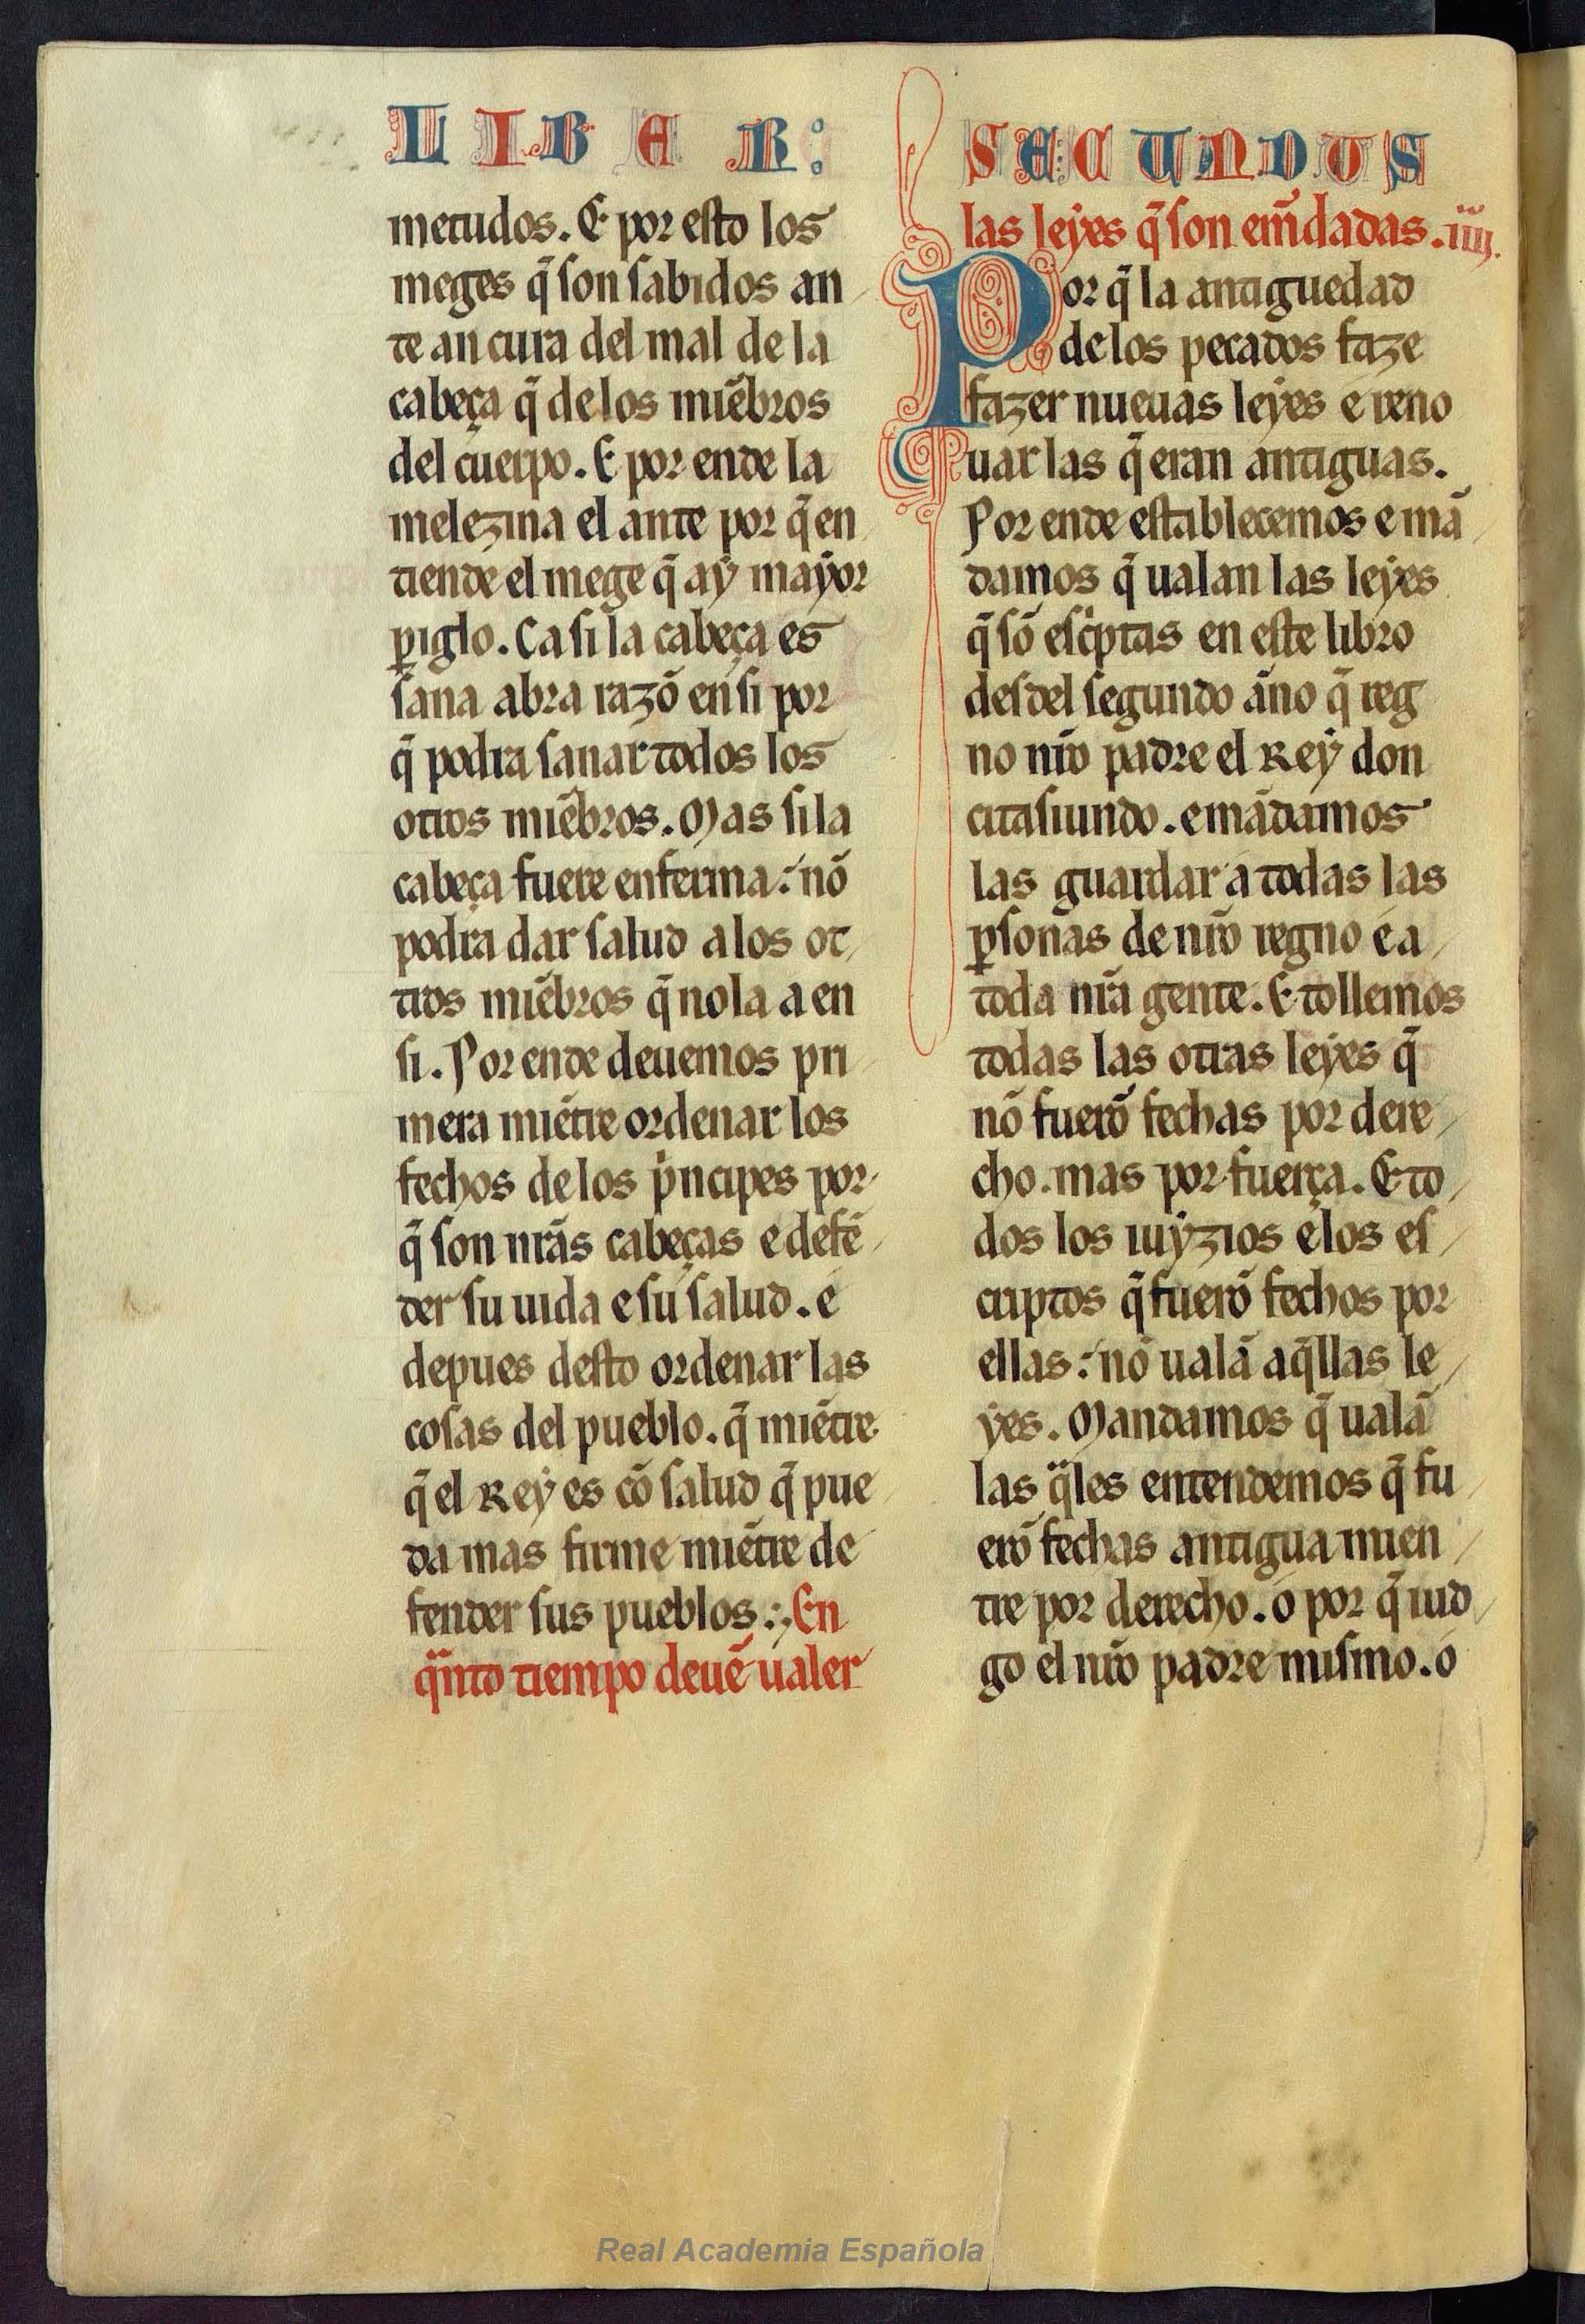 LIBER:
metudos. E por esto los
meges q̃ son sabidos an
te an cura del mal de la
cabeça q̃ delos miẽbros
del cuerpo. E por ende la
melezina el ante por q̃ en
tiende el mege q̃ aẏ maẏor
ꝑiglo. Ca si la cabeça es
sana abra razõ en si por
q̃ podra sanar todos los
otros miẽbros. Mas si la
cabeça fuere enferma: nõ
podra dar salud alos ot
tros miẽbros q̃ no la a en
si. Por ende deuemos pri
mera miẽtre ordenar los
fechos delos pͥncipes por
q̃ son nr̃as cabeças e defẽ
der su uida e su salud. e
depues desto ordenar las
cosas del pueblo. q̃ miẽtre
q̃ el Reẏ es cõ salud q̃ pue
da mas firme miẽtre de
fender sus pueblos:, En
qͣnto tiempo deuẽ ualer
SECUNDUS
las leẏes q̃ son em̃dadas. iiij.
Por q̃ la antiguedad
delos pecados faze
fazer nueuas leẏes e reno
uar las q̃ eran antiguas.
Por ende establecemos e mã
damos q̃ ualan las leẏes
q̃ sõ escͥptas en este libro
desdel segundo año q̃ reg
no nr̃o padre el Reẏ don
citasiundo. e mãdamos
las guardar a todas las
ꝑsonas de nr̃o regno e a
toda nr̃a gente. E tollemos
todas las otras leẏes q̃
nõ fuerõ fechas por dere
cho. mas por fuerça. E to
dos los iuẏzios e los es
criptos q̃ fuerõ fechos por
ellas: nõ ualã aq̃llas le
ẏes. Mandamos q̃ ualã
las qͣles entendemos q̃ fu
erõ fechas antigua mien
tre por derecho. o por q̃ iud
go el nr̃o padre mismo. o
Real Academia Española